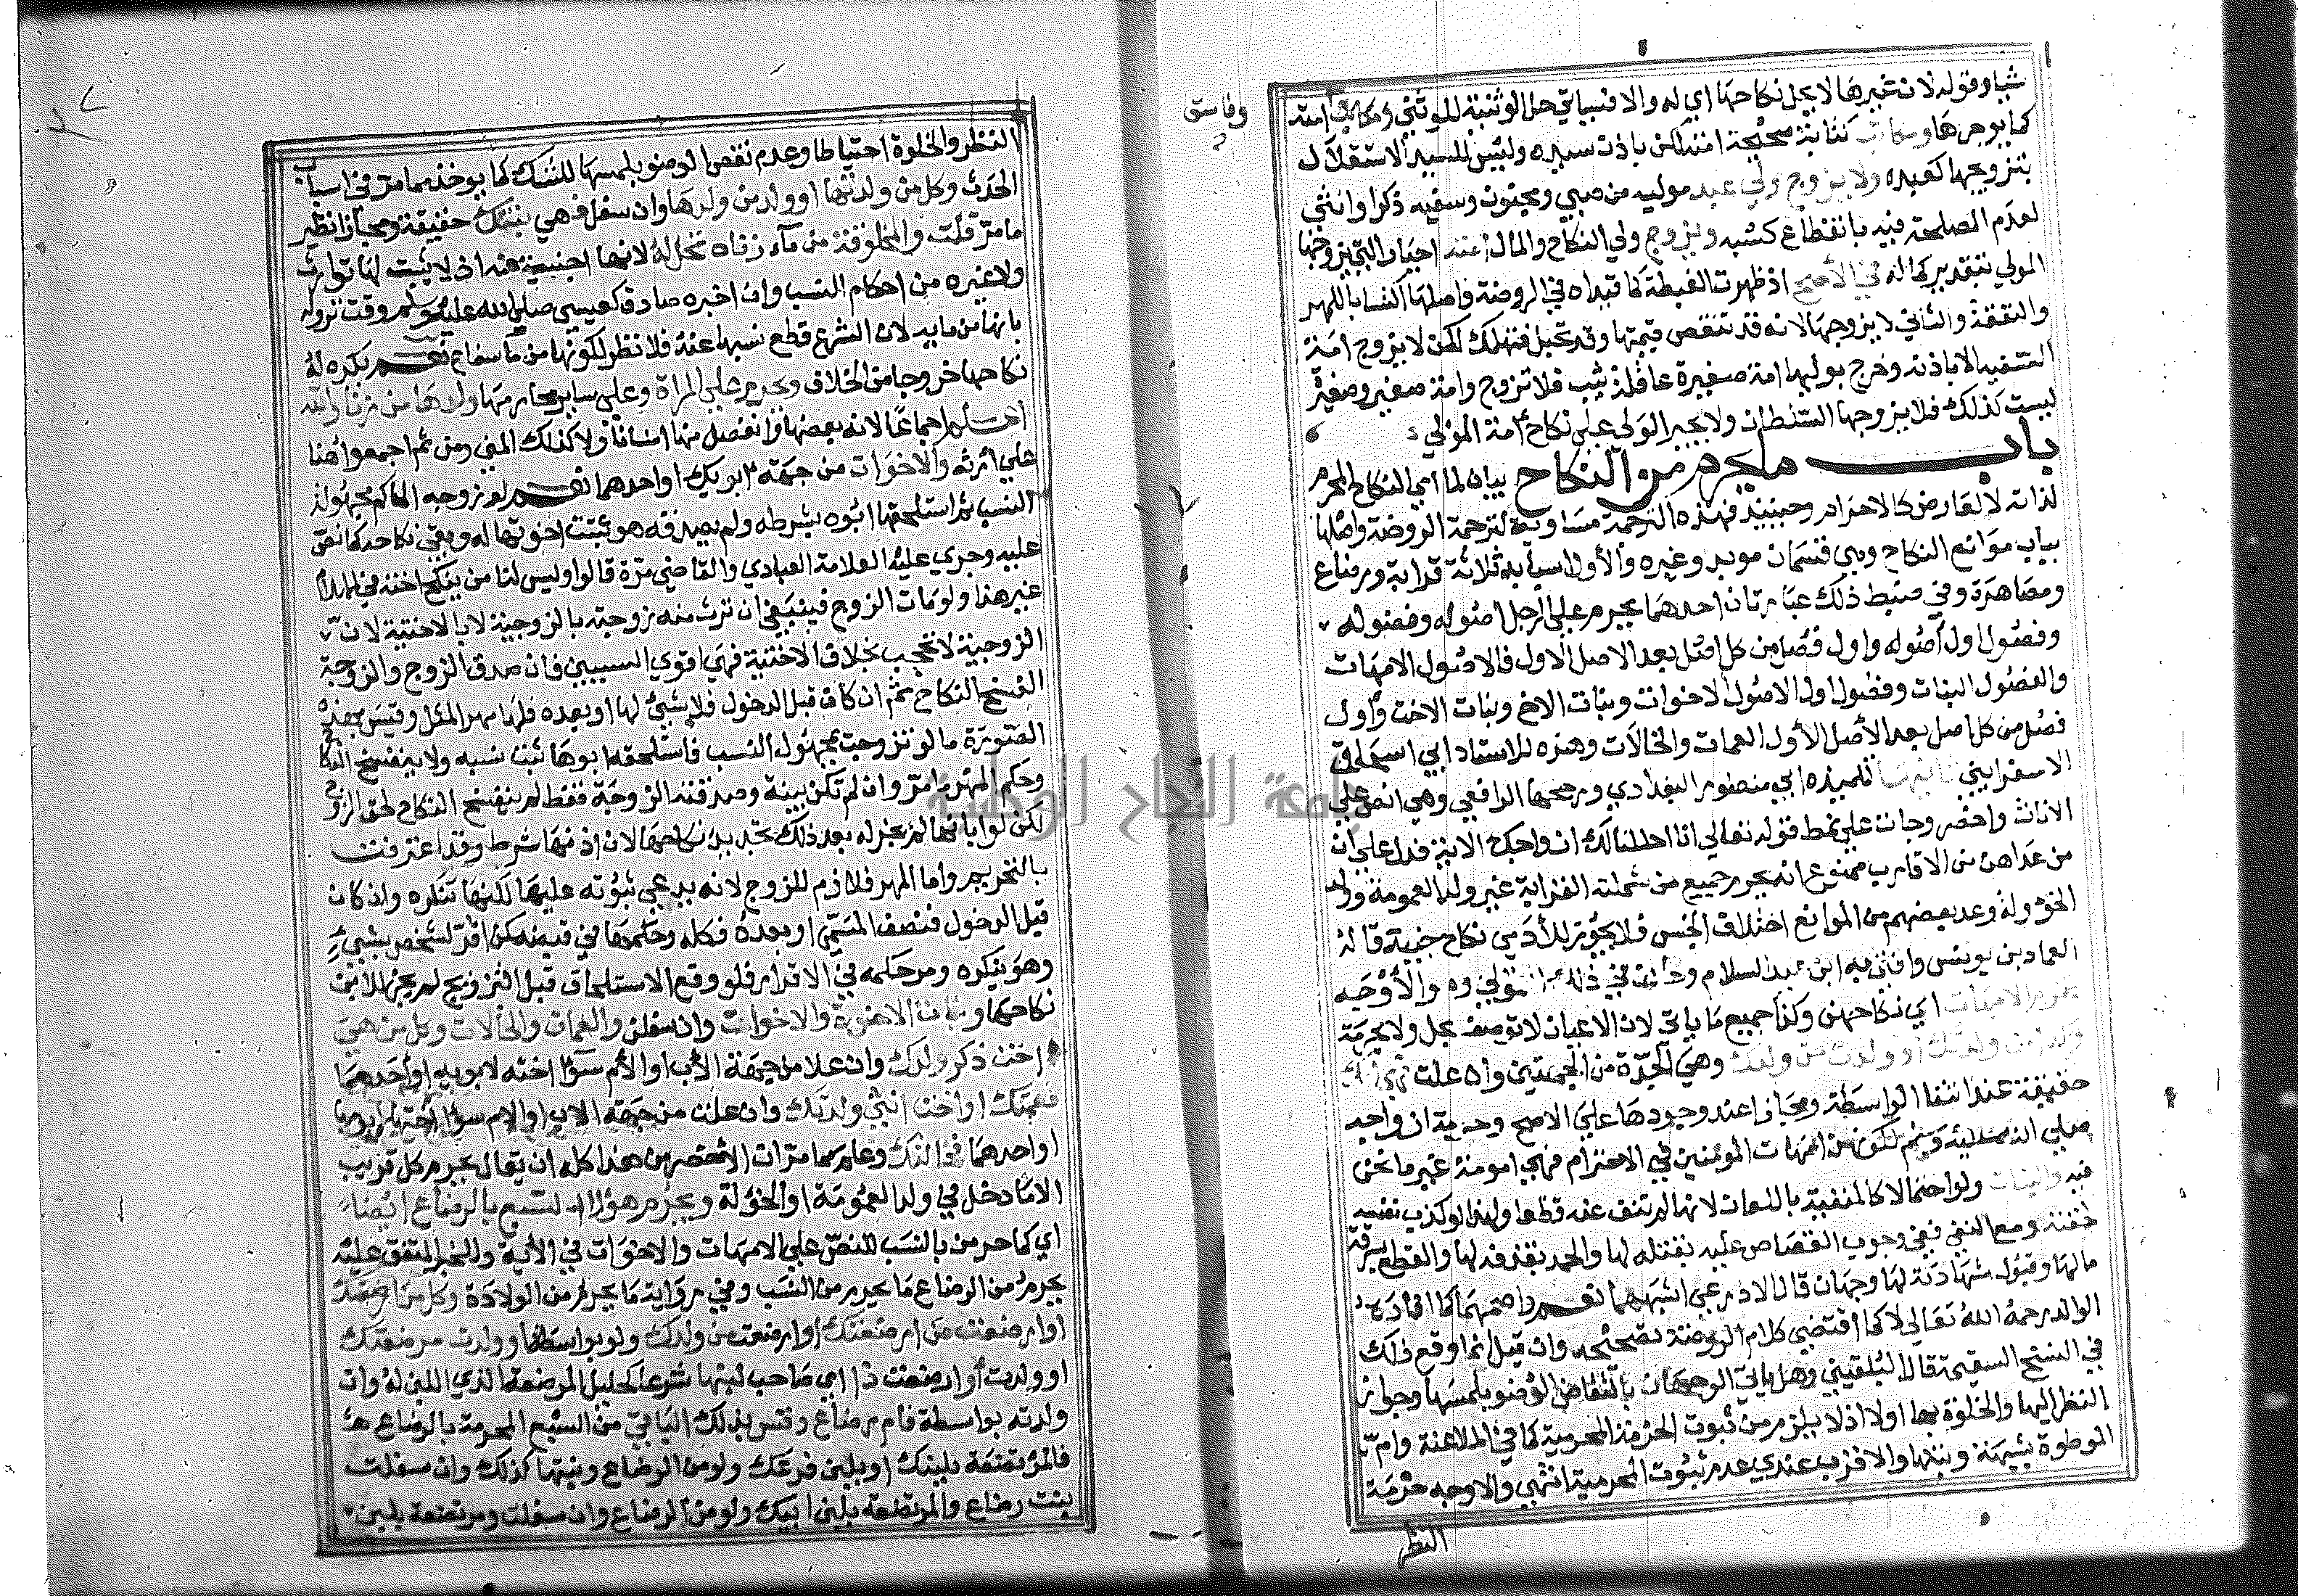 شيا وقوله لان غيرها لا يحل نكاحها اي له والا فسياتي حل الوثنية للوثني وكتابي امته
وفاسق
كما يوجرها ومكاتب كتابة صحيحة امته لكن باذن سيده وليس للسيد الاستقلال
بتزويجها كعبده ولا يزوج ولي عبد موليه من صبي ومجنون وسفيه ذكرا وانثى
لعدم المصلحة فيه بانقطاع كسبه ويزوج ولي النكاح والمال امته اجبارا التي يزوجها
المولي بتقدير كماله في الاصح اذ ظهرت الغبطة كما قيداه في الروضة واصلها اكتسابا للمهر
والنفقة والثاني لا يزوجها لانه قد تنقص قيمتها وقد تحبل فتهلك لكن لا يزوج امة
السفيه الا باذنه وخرج بوليها امة صغيرة عاقلة ثيب فلا تزوج وامة صغير وصغيرة
ليست كذلك فلا يزوجها السلطان ولا يجبر الولي على نكاح امة المولي
باب ما يحرم من النكاح بيان لما اي النكاح المحرم
لذاته لا لعارض كالاحرام وحينئذ فهذه الترجمة مساوية لترجمة الروضة واصلها
بباب موانع النكاح وهي قسمان موبد وغيره والاول اسبابه ثلاثة قرابة ورضاع
ومصاهرة وفي ضبط ذلك عبارتان احدهما يحرم على الرجل اصوله وفصوله
وفصول اول اصوله واول فصل من كل اصل بعد الاصل الاول فالاصول الامهات
والفصول البنات وفصول اول الاصول الاخوات وبنات الاخ وبنات الاخت واول
فصل من كل اصل بعد الاصل الاول العمات والخالات وهذه للاستاد ابي اسحاق
الاسفرايني ثانيهما تلميذه ابي منصور البغدادي ورجحها الرافعي وهي انص على
الاناث واخصر وجات على نمط قوله تعالى انا احللنا لك ازواجك الاية فدل على ان
من عداهن من الاقارب ممنوع انه يحرم جميع من شملته القرابة غير ولد العمومة وولد
الخؤولة وعد بعضهم من الموانع اختلاف الجنس فلا يجوز للآدمي نكاح جنية قاله
العماد بن يونس وافتى به ابن عبد السلام وخالف في ذلك القمولي وهو الاوجه
تحرم الامهات اي نكاحهن وكذا جميع ما ياتي لان الاعيان لا توصف بحل ولا بحرمة
وكل من ولدتك او ولدت من ولدك وهي الجدة من الجهتين وان علت فهي امك
حقيقة عند انتفا الواسطة ومجازا عند وجودها على الاصح وحرمة ازواجه
صلى الله عليه وسلم لكونهن امهات المؤمنين في الاحترام فهي امومة غير ما نحن
فيه والبنات ولو احتمالا كالمنفية باللعان لانها لم تنتف عنه قطعا ولهذا لو كذب نفسه
لحقته ومع النفي ففي وجوب القصاص عليه بقتله لها والحد بقذفه لها والقطع بسرقة
مالها وقبول شهادته لها وجهان قال الاذرعي اشبههما نعم واصحهما كما افاده
الوالد رحمه الله تعالى لا كما اقتضى كلام الروضة تصحيحه وان قيل انما وقع ذلك
في النسخ السقيمة قال البلقيني وهل ياتي الوجهان بانتقاض الوضو بلمسها وجواز
النظر اليها والخلوة بها اولا اذ لا يلزم من ثبوت الحرمة المحرمية كما في الملاعنة وام
الموطوة بشبهة وبنتها والاقرب عندي عدم ثبوت المحرمية انتهى والاوجه حرمة
النظر
النظر والخلوة احتياطا وعدم نقض الوضو بلمسها للشك كما يوخذ مما مر في اسباب
الحدث وكل من ولدتها او ولد من ولدها وان سفل فهي بنتك حقيقة ومجازا نظير
ما مر قلت والمخلوقة من مآء زناه تحل له لانها اجنبية عنه اذ لا يثبت لها توارث
ولا غيره من احكام النسب وان اخبره صادق كعيسى صلى الله عليه وسلم وقت نزوله
بانها من مايه لان الشرع قطع نسبها عنه فلا نظر لكونها من ما سفاح نعم يكره له
نكاحها خروجا من الخلاف ويحرم على المراة وعلى ساير محارمها ولدها من زنا والله
اعلم اجماعا لانه بعضها وانفصل منها انسانا ولا كذلك المني ومن ثم اجمعوا هنا
على ارثه والاخوات من جهة ابويك او احدهما نعم لو زوجه الحاكم مجهولة
النسب ثم استلحقها ابوه بشرطه ولم يصدقه هو ثبتت اخوتها له وبقي نكاحه كما نص
عليه وجرى عليه العلامة العبادي والقاضي مرة قالوا وليس لنا من ينكح اخته في الاسلام
غير هذا ولو مات الزوج فينبغي ان ترث منه زوجته بالزوجية لا بالاختية لان
الزوجية لا تحجب بخلاف الاختية فهي اقوى السببين فان صدق الزوج والزوجة
انفسخ النكاح ثم ان كان قبل الدخول فلا شئ لها او بعده فلها مهر المثل وقيس بهذه
الصورة ما لو تزوجت بمجهول النسب فاستلحقه ابوها ثبت نسبه ولا ينفسخ النكاح
وحكم المهر ما مر وان لم تكن بينة وصدقته الزوجة فقط لم ينفسخ النكاح لحق الزوج
لكن لو ابانها لم يجز له بعد ذلك تجديد نكاحها لان اذنها شرط وقد اعترفت
بالتحريم واما المهر فلازم للزوج لانه يدعي ثبوته عليها لكنها تنكره واذ كان
قبل الدخول فنصف المسمى او بعده فكله وحكمها في قبضه كمن اقر لشخص بشئ
وهو ينكره ومر حكمه في الاقرار فلو وقع الاستلحاق قبل التزويج لم يجز للابن
نكاحها وبنات الاخوة والاخوات وان سفلن والعمات والخالات وكل من هي
اخت ذكر ولدك وان علا من جهة الاب او الام سوآ اخته لابويه او احدهما
فعمتك او اخت انثى ولدتك وان علت من جهة الاب او الام سوآ اختها لابويها
او احدهما فخالتك وعلم مما مر ان الاخصر من هذا كله ان يقال يحرم كل قريب
الا ما دخل في ولد العمومة او الخؤلة ويحرم هؤلاء السبع بالرضاع ايضا
اي كما حرمن بالنسب للنص على الامهات والاخوات في الآية وللخبر المتفق عليه
يحرم من الرضاع ما يحرم من النسب وفي رواية ما يحرم من الولادة وكل من ارضعتك
او ارضعت من ارضعتك او ارضعت من ولدك ولو بواسطة او ولدت مرضعتك
او ولدت او ارضعت ذا اي صاحب لبنها شرعا كحليل المرضعة الذي اللبن له وان
ولدته بواسطة فام رضاع وقس بذلك الباقي من السبع المحرمة بالرضاع
فالمرتضعة بلبنك او بلبن فرعك ولو من الرضاع وبنتها كذلك وان سفلت
بنت رضاع والمرتضعة بلبن ابيك ولو من الرضاع وان سفلت ومرتضعة بلبن